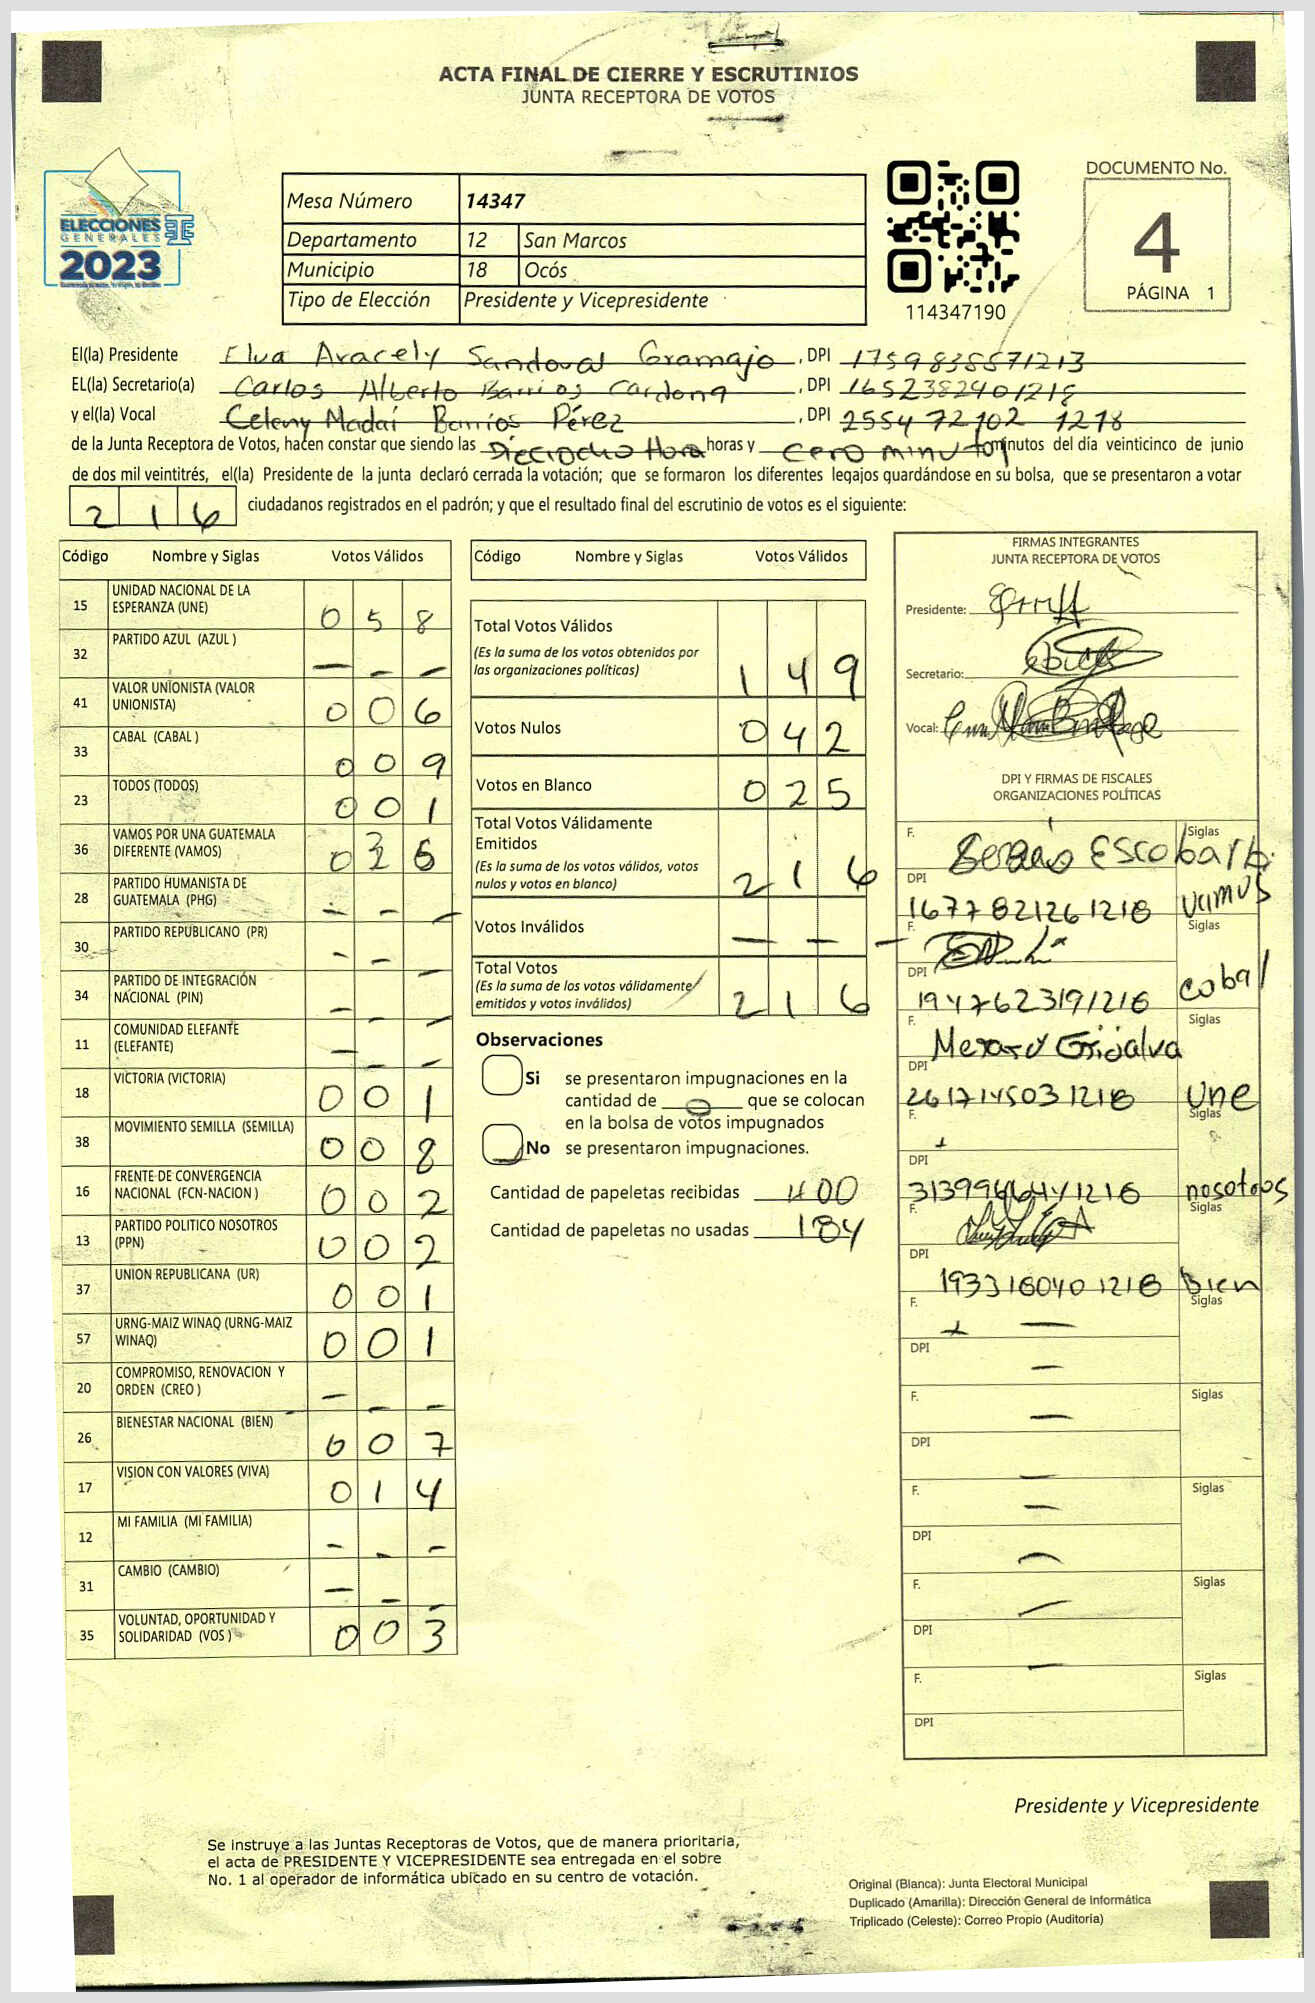 ACTA FINAL DE CIERRE Y ESCRUTINIOS
JUNTA RECEPTORA DE VOTOS
ELECCIONES
GENERALES
2023
Mesa Número 14347
Departamento 12 San Marcos
Municipio 18 Ocós
Tipo de Elección Presidente y Vicepresidente
114347190
DOCUMENTO No.
4
PÁGINA 1
El(la) Presidente Elva Aracely Sandoval Gramajo, DPI 1759838571213
EL(la) Secretario(a) Carlos Alberto Barrios Cardona, DPI 1652382401218
y el(la) Vocal Celeny Madaí Barrios Pérez, DPI 2554 72702 1218
de la Junta Receptora de Votos, hacen constar que siendo las Dieciocho Hora horas y cero minutos minutos del día veinticinco de junio
de dos mil veintitrés, el(la) Presidente de la junta declaró cerrada la votación; que se formaron los diferentes legajos guardándose en su bolsa, que se presentaron a votar
216 ciudadanos registrados en el padrón; y que el resultado final del escrutinio de votos es el siguiente:
Código Nombre y Siglas Votos Válidos
15 UNIDAD NACIONAL DE LA ESPERANZA (UNE) 0 5 8
32 PARTIDO AZUL (AZUL ) — — —
41 VALOR UNIONISTA (VALOR UNIONISTA) 0 0 6
33 CABAL (CABAL ) 0 0 9
23 TODOS (TODOS) 0 0 1
36 VAMOS POR UNA GUATEMALA DIFERENTE (VAMOS) 0 3 6
28 PARTIDO HUMANISTA DE GUATEMALA (PHG) — — —
30 PARTIDO REPUBLICANO (PR) — — —
34 PARTIDO DE INTEGRACIÓN NACIONAL (PIN) — — —
11 COMUNIDAD ELEFANTE (ELEFANTE) — — —
18 VICTORIA (VICTORIA) 0 0 1
38 MOVIMIENTO SEMILLA (SEMILLA) 0 0 8
16 FRENTE DE CONVERGENCIA NACIONAL (FCN-NACION ) 0 0 2
13 PARTIDO POLITICO NOSOTROS (PPN) 0 0 2
37 UNION REPUBLICANA (UR) 0 0 1
57 URNG-MAIZ WINAQ (URNG-MAIZ WINAQ) 0 0 1
20 COMPROMISO, RENOVACION Y ORDEN (CREO ) — — —
26 BIENESTAR NACIONAL (BIEN) 0 0 7
17 VISION CON VALORES (VIVA) 0 1 4
12 MI FAMILIA (MI FAMILIA) — — —
31 CAMBIO (CAMBIO) — — —
35 VOLUNTAD, OPORTUNIDAD Y SOLIDARIDAD (VOS ) 0 0 3
Código Nombre y Siglas Votos Válidos
Total Votos Válidos 1 4 9
(Es la suma de los votos obtenidos por
las organizaciones políticas)
Votos Nulos 0 4 2
Votos en Blanco 0 2 5
Total Votos Válidamente
Emitidos 2 1 6
(Es la suma de los votos válidos, votos
nulos y votos en blanco)
Votos Inválidos — — —
Total Votos 2 1 6
(Es la suma de los votos válidamente
emitidos y votos inválidos)
Observaciones
Si se presentaron impugnaciones en la
cantidad de 0 que se colocan
en la bolsa de votos impugnados
No se presentaron impugnaciones.
Cantidad de papeletas recibidas 400
Cantidad de papeletas no usadas 184
FIRMAS INTEGRANTES
JUNTA RECEPTORA DE VOTOS
Presidente:
Secretario:
Vocal:
DPI Y FIRMAS DE FISCALES
ORGANIZACIONES POLÍTICAS
F. Sergio Escobar Siglas
DPI 1677821261218 vamos
F. Siglas
DPI 1947623191218 cobal
F. Merary Grijalva Siglas
DPI 2617145031218 Une
F. Siglas
DPI 1218 nosotros
F. Siglas
DPI 1933180401218 Bien
F. — Siglas
DPI —
F. — Siglas
DPI —
F. — Siglas
DPI —
F. — Siglas
DPI —
F. Siglas
DPI
Presidente y Vicepresidente
Se instruye a las Juntas Receptoras de Votos, que de manera prioritaria,
el acta de PRESIDENTE Y VICEPRESIDENTE sea entregada en el sobre
No. 1 al operador de informática ubicado en su centro de votación.
Original (Blanca): Junta Electoral Municipal
Duplicado (Amarilla): Dirección General de Informática
Triplicado (Celeste): Correo Propio (Auditoría)